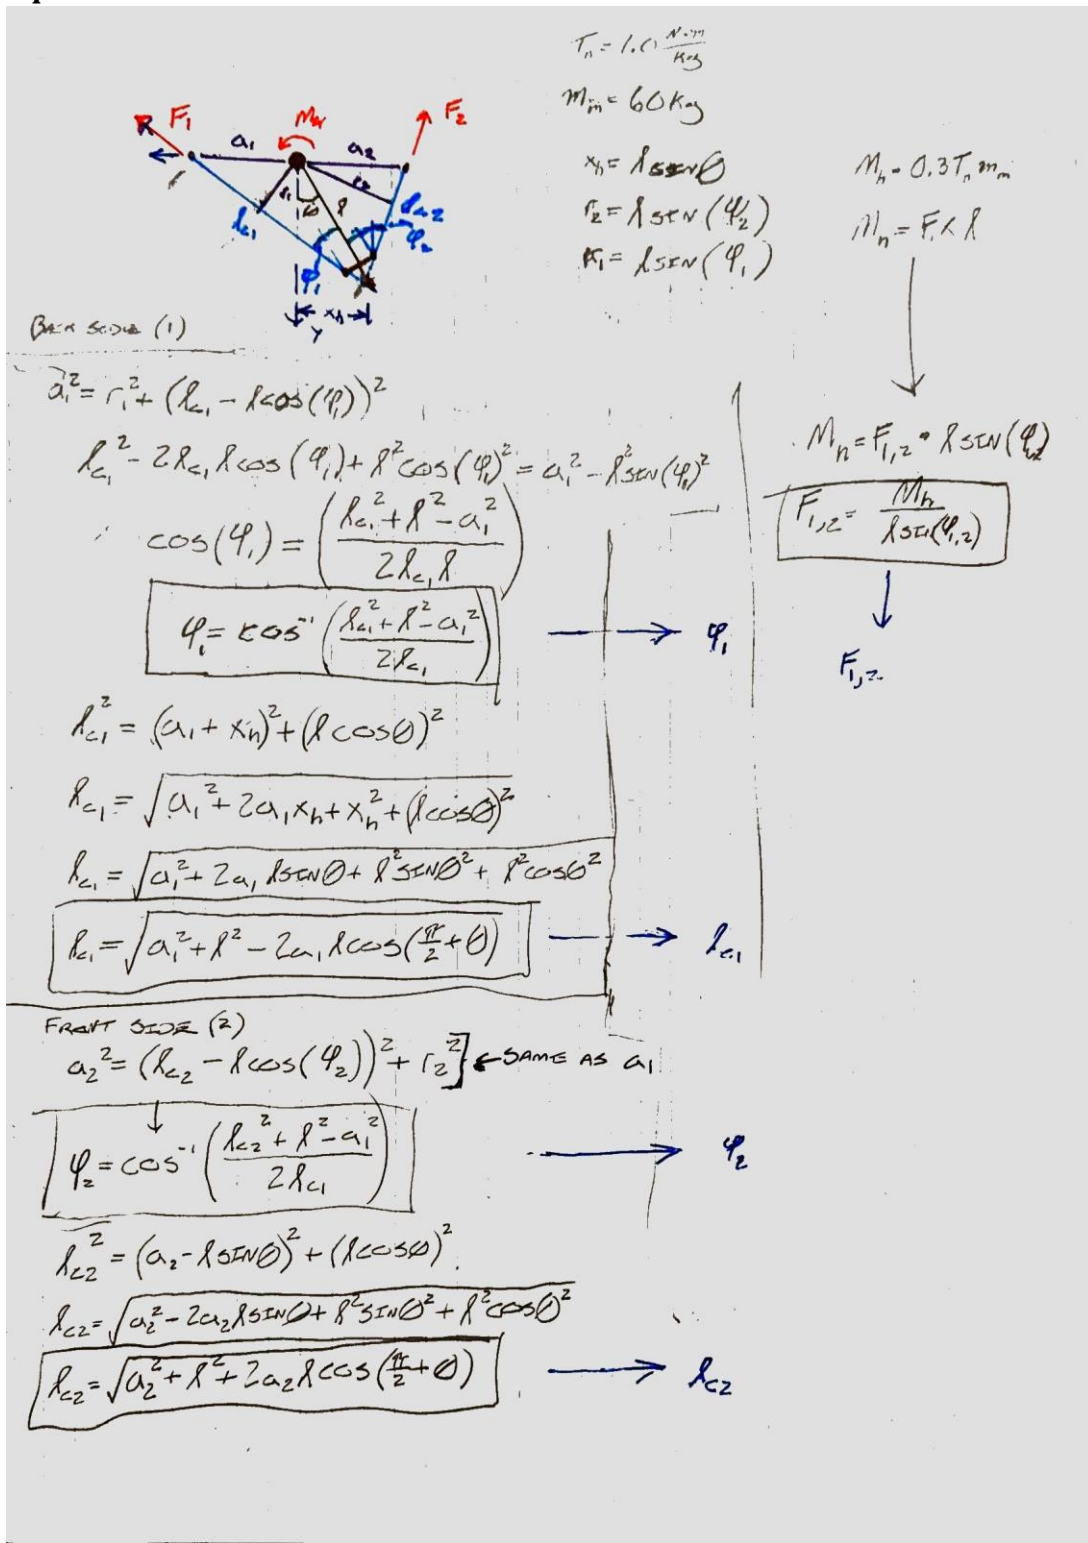 T_n = 1.0 N·m/Kg
m_m = 60Kg
F_1 M_h F_2
a_1 a_2
r_1 θ l r_2
l_c1 l_c2
φ_1 φ_2
x_h
y
x_h = l sinθ
r_2 = l sin(φ_2)
r_1 = l sin(φ_1)
M_h = 0.3 T_n m_m
M_h = F × l
M_h = F_1,2 • l sin(φ_1,2)
F_1,2 = M_h / l sin(φ_1,2)
F_1,2
BACK SIDE (1)
a_1² = r_1² + (l_c1 - l cos(φ_1))²
l_c1² - 2l_c1 l cos(φ_1) + l² cos(φ_1)² = a_1² - l² sin(φ_1)²
cos(φ_1) = ((l_c1² + l² - a_1²) / 2l_c1 l)
φ_1 = cos⁻¹((l_c1² + l² - a_1²) / 2l_c1) → φ_1
l_c1² = (a_1 + x_h)² + (l cosθ)²
l_c1 = √(a_1² + 2a_1 x_h + x_h² + (l cosθ)²)
l_c1 = √(a_1² + 2a_1 l sinθ + l² sinθ² + l² cosθ²)
l_c1 = √(a_1² + l² - 2a_1 l cos(π/2 + θ)) → l_c1
FRONT SIDE (2)
a_2² = (l_c2 - l cos(φ_2))² + r_2² ] ← SAME AS a_1
φ_2 = cos⁻¹((l_c2² + l² - a_1²) / 2l_c1) → φ_2
l_c2² = (a_2 - l sinθ)² + (l cosθ)²
l_c2 = √(a_2² - 2a_2 l sinθ + l² sinθ² + l² cosθ²)
l_c2 = √(a_2² + l² + 2a_2 l cos(π/2 + θ)) → l_c2